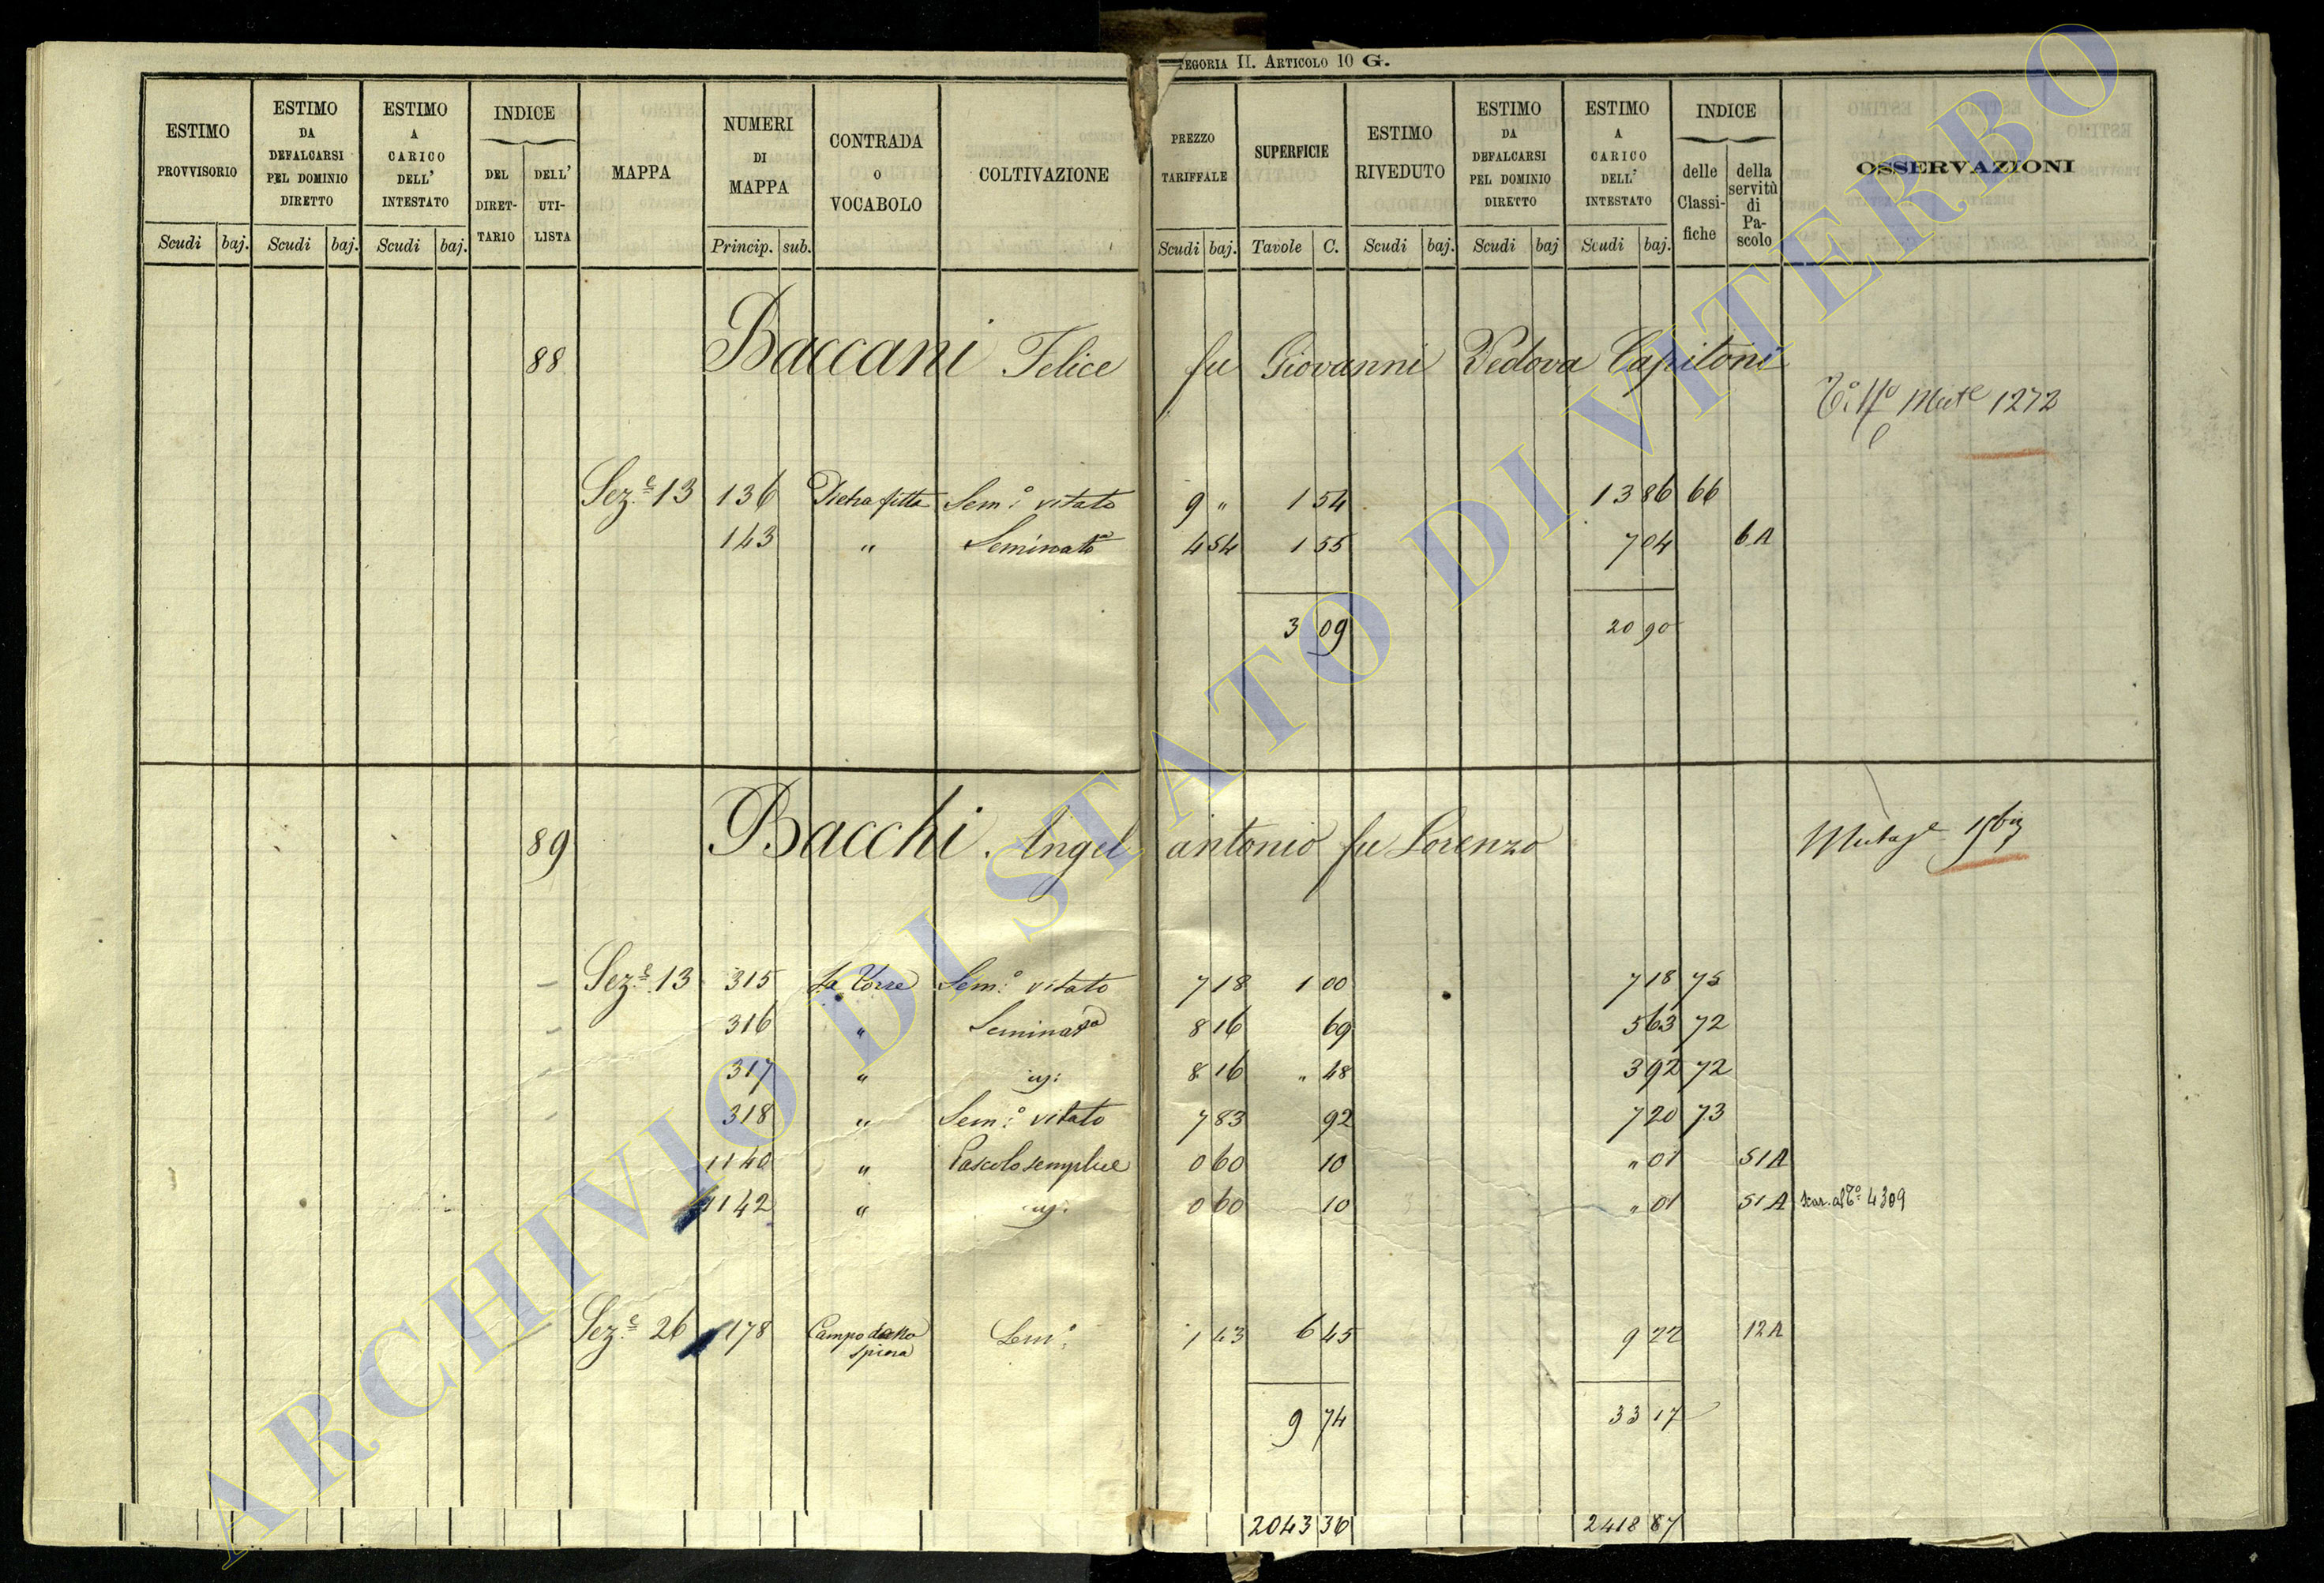 TEGORIA II. ARTICOLO 10 G.
ESTIMO PROVVISORIO Scudi baj.
ESTIMO DA DEFALCARSI PEL DOMINIO DIRETTO Scudi baj.
ESTIMO A CARICO DELL' INTESTATO Scudi baj.
INDICE DEL DIRET-TARIO DELL' UTI-LISTA
MAPPA
NUMERI DI MAPPA Princip. sub.
CONTRADA O VOCABOLO
COLTIVAZIONE
PREZZO TARIFFALE Scudi baj.
SUPERFICIE Tavole C.
ESTIMO RIVEDUTO Scudi baj.
ESTIMO DA DEFALCARSI PEL DOMINIO DIRETTO Scudi baj
ESTIMO A CARICO DELL' INTESTATO Scudi baj.
INDICE delle Classi-fiche della servitù di Pa-scolo
OSSERVAZIONI
88 Baccani Felice fu Giovanni Vedova Capitoni
1272
Sez.e 13 136 Pietra fitta Sem.o vitato 9 " 1 54 13 86 66
143 " Seminato 4 54 1 55 7 04 6 A
3 09 20 90
89 Bacchi Angel antonio fu Lorenzo
Sez.e 13 315 La Torre Sem.o vitato 7 18 1 00 7 18 75
316 " 8 16 69 5 63 72
317 " 8 16 " 48 3 92 72
318 " Sem.o vitato 7 83 92 7 20 73
1140 " Pascolo semplice 0 60 10 " 01 51 A
1142 " 0 60 10 " 01 51 A 4309
Sez.e 26 178 Campo spina Sem.o 1 43 6 45 9 22 12 A
9 74 33 17
2043 36 2418 87
ARCHIVIO DI STATO DI VITERBO